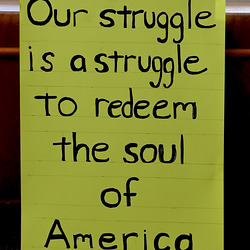 Our struggle
is a struggle
to redeem
the soul
of
America